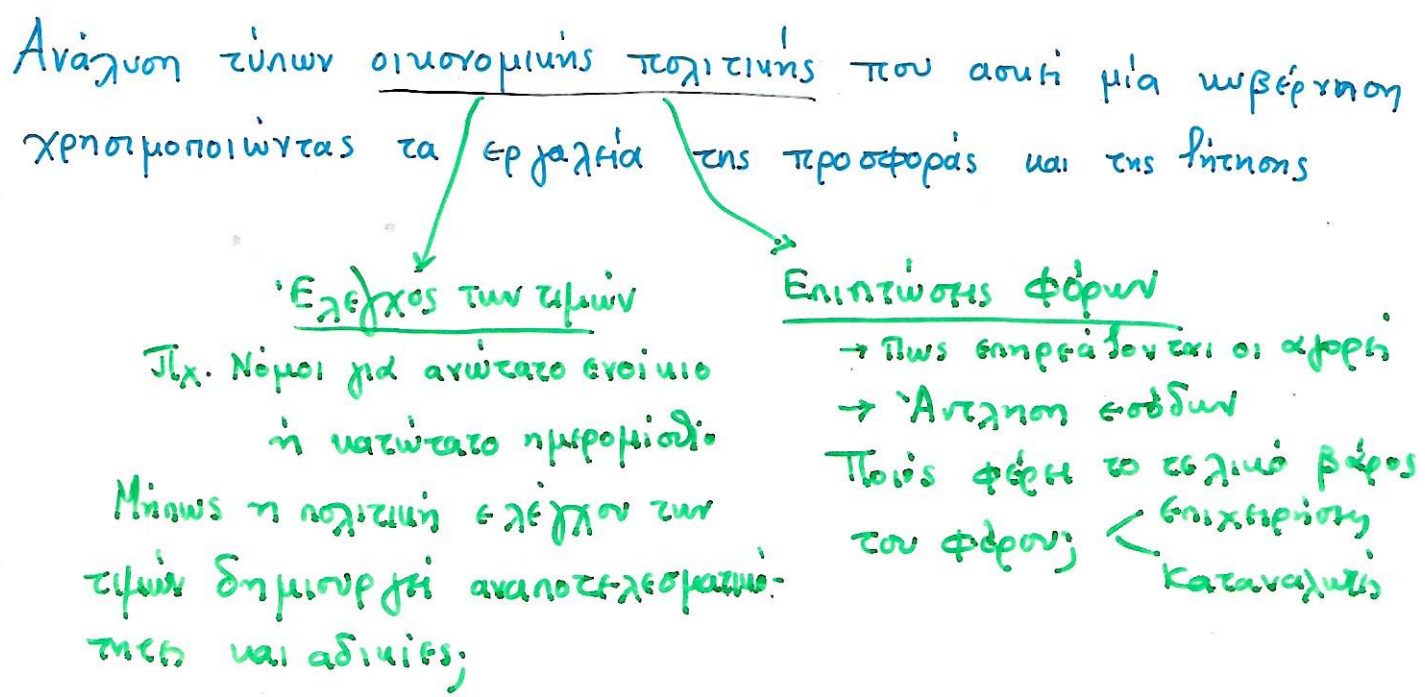 Ανάλυση τύπων οικονομικής πολιτικής που ασκεί μία κυβέρνηση
χρησιμοποιώντας τα εργαλεία της προσφοράς και της ζήτησης
Έλεγχος των τιμών
Πχ. Νόμοι για ανώτατο ενοίκιο
ή κατώτατο ημερομίσθιο
Μήπως η πολιτική ελέγχου των
τιμών δημιουργεί αναποτελεσματικό-
τητες και αδικίες;
Επιπτώσεις φόρων
→ Πως επηρεάζονται οι αγορές
→ Άντληση εσόδων
Ποιός φέρει το τελικό βάρος
του φόρου;
επιχειρήσεις
καταναλωτές